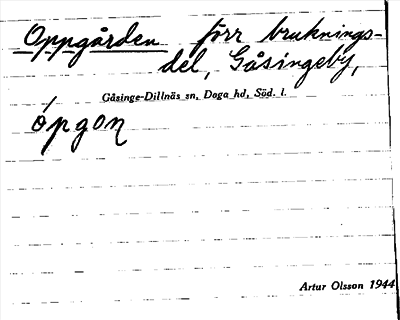 Oppgården förr bruknings-
del, Gåsingeby,
Gåsinge-Dillnäs sn, Daga hd, Söd. l.
ópgon
Artur Olsson 1944